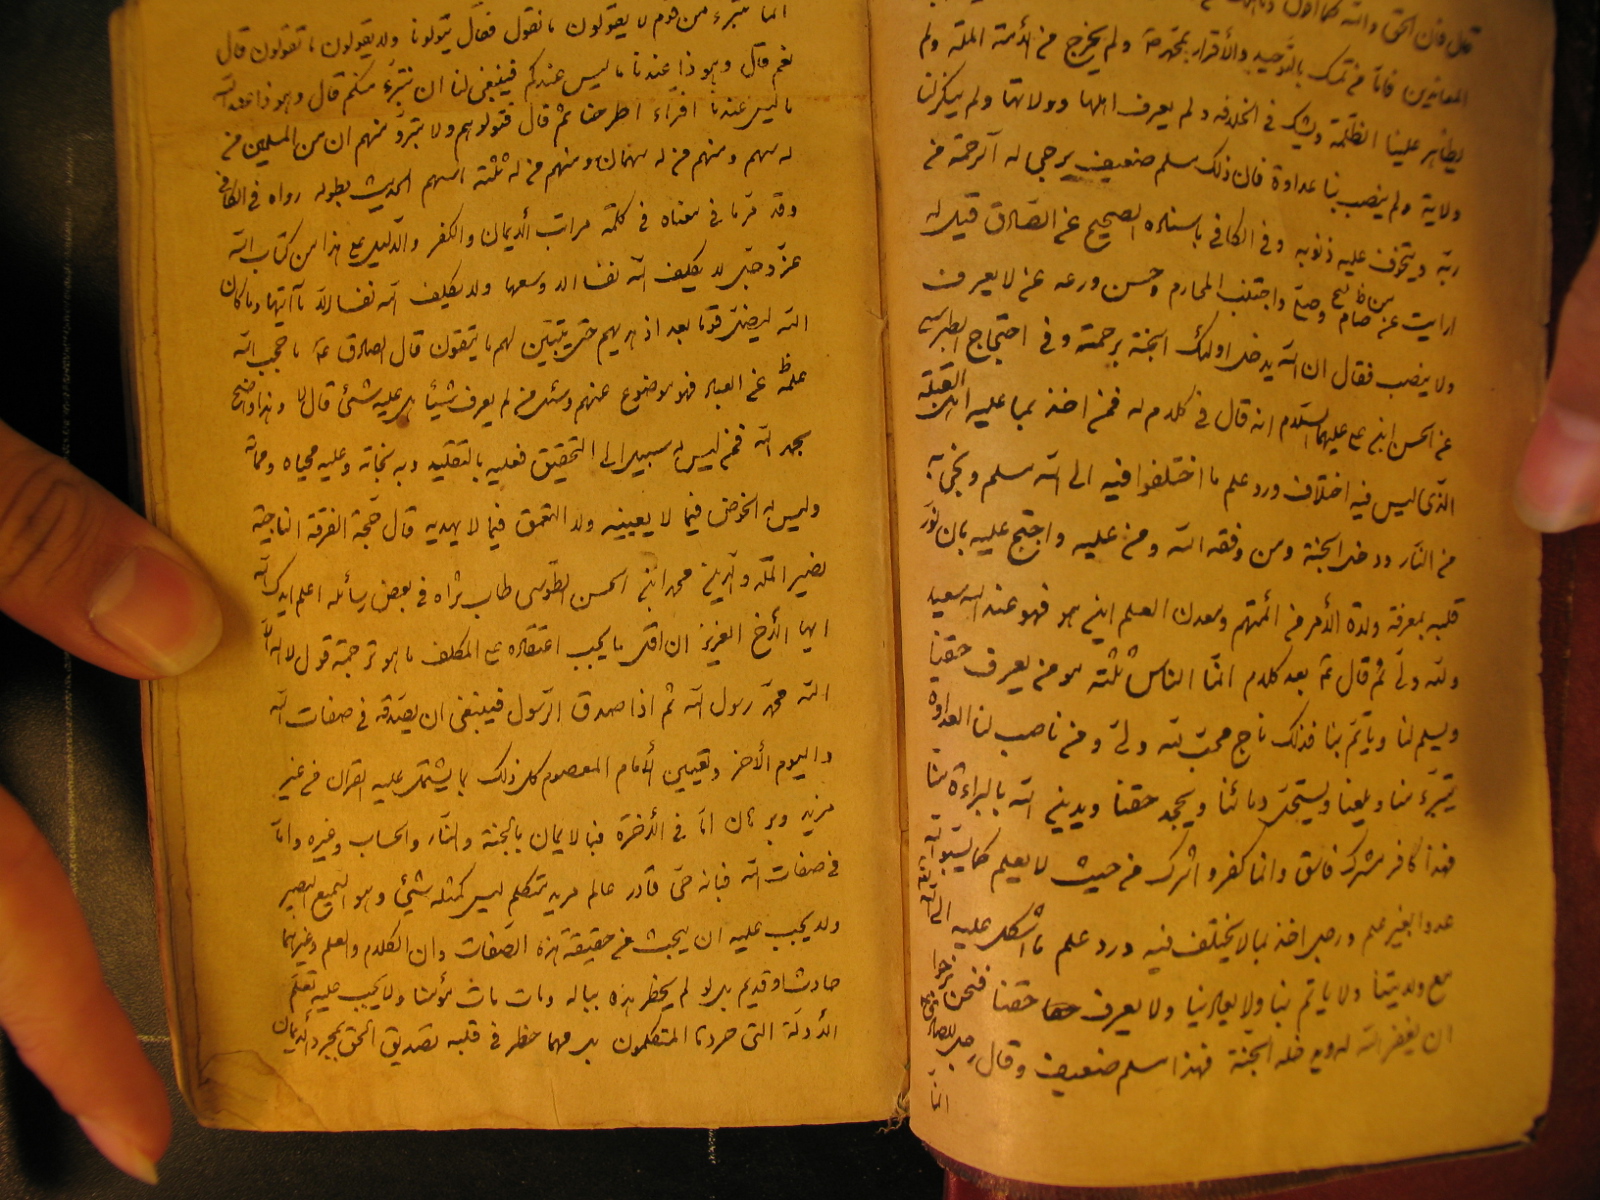 قال فان الحق والله كما اقول
المعاندين فاما من تمسك بالتوحيد والأقرار بمحمد ص ولم يخرج من الأئمة الملة ولم
يظاهر علينا الظلمة ويشك في الخلافة ولم يعرف اهلها وولاتها ولم ينكر لنا
ولاية ولم ينصب بنا عداوة فان ذلك مسلم ضعيف يرجى له الرحمة من
ربه ويتخوف عليه ذنوبه وفي الكافي باسناده الصحيح عن الصادق قيل له
ارايت من صام وصلى واجتنب المحارم وحسن ورعه عن لا يعرف
ولا ينصب فقال ان الله يدخل اولئك الجنة برحمته وفي احتجاج الطبرسي
عن الحسن ابن علي عليهما السلام انه قال في كلام له فمن اخذ بما عليه اهل القبلة
الذي ليس فيه اختلاف ورد علم ما اختلفوا فيه الى الله سلم ونجى به
من النار ودخل الجنة ومن وفقه الله ومن عليه واحتج عليه بان نور
قلبه بمعرفة ولاة الأمر من أئمتهم ومعدن العلم اين هو فهو عند الله سعيد
ولله ولي ثم قال ع بعد كلام انما الناس ثلثة مومن يعرف حقنا
ويسلم لنا وياتم بنا فذلك ناج محب لله ولي ومن ناصب لنا العداوة
يتبرء منا ويلعنا ويستحل دمائنا ويجحد حقنا ويدين الله بالبراءة منا
فهذا كافر مشرك فاسق وانما كفر واشرك من حيث لا يعلم كما يسبوا الله
عدوا بغير علم ورجل اخذ بما لا يختلف فيه ورد علم ما اشكل عليه الى الله
مع ولايتنا ولا ياتم بنا ولا يعادينا ولا يعرف حقنا فنحن نرجوا
ان يغفر الله له ويدخله الجنة فهذا مسلم ضعيف وقال رجل للصادق ع
انا
انما نتبرء من قوم لا يقولون ما نقول فقال يتولونا ولا يقولون ما تقولون قال
نعم قال وهو ذا عندنا ما ليس عندكم فينبغي لنا ان نتبرء منكم قال وهو ذا عند الله
ما ليس عندنا افتراه اطرحنا ثم قال فتولوهم ولا تبرؤ منهم ان من المسلمين من
له سهم ومنهم من له سهمان ومنهم من له ثلثة اسهم الحديث بطوله رواه في الكافي
وقد مر ما في معناه في كلمة مراتب الأيمان والكفر والدليل على هذا من كتاب الله
عز وجل لا يكلف الله نفسا الا وسعها ولا يكلف الله نفسا الا ما آتيها وما كان
الله ليضل قوما بعد اذ هديهم حتى يتبين لهم ما يتقون قال الصادق ع ما حجب الله
علمه عن العباد فهو موضوع عنهم وسئل من لم يعرف شيئا هل عليه شئ قال لا وهذا واضح
بحمد الله فمن ليس له سبيل الى التحقيق فعليه بالتقليد وبه نجاته وعليه محياه ومماته
وليس له الخوض فيما لا يعينه ولا التعمق فيما لا يهديه قال حجة الفرقة الناجية
نصير الملة والدين محمد ابن الحسن الطوسي طاب ثراه في بعض رسائله اعلم ايدك الله
ايها الأخ العزيز ان اقل ما يجب اعتقاده على المكلف ما هو ترجمة قول لا اله الا
الله محمد رسول الله ثم اذا صدق الرسول فينبغي ان يصدقه في صفات الله
واليوم الأخر وتعيين الأمام المعصوم كل ذلك بما يشتمل عليه القران من غير
مزيد وبرهان اما في الأخرة فبالايمان بالجنة والنار والحساب وغيره واما
في صفات الله فبانه حي قادر عالم مريد متكلم ليس كمثله شئ وهو السميع البصير
ولا يجب عليه ان يبحث عن حقيقة هذه الصفات وان الكلام والعلم وغيرهما
حادث او قديم بل لو لم يخطر هذه بباله ومات مات مؤمنا ولا يجب عليه تعلم
الأدلة التي حررها المتكلمون بل مهما خطر في قلبه تصديق الحق بمجرد الأيمان